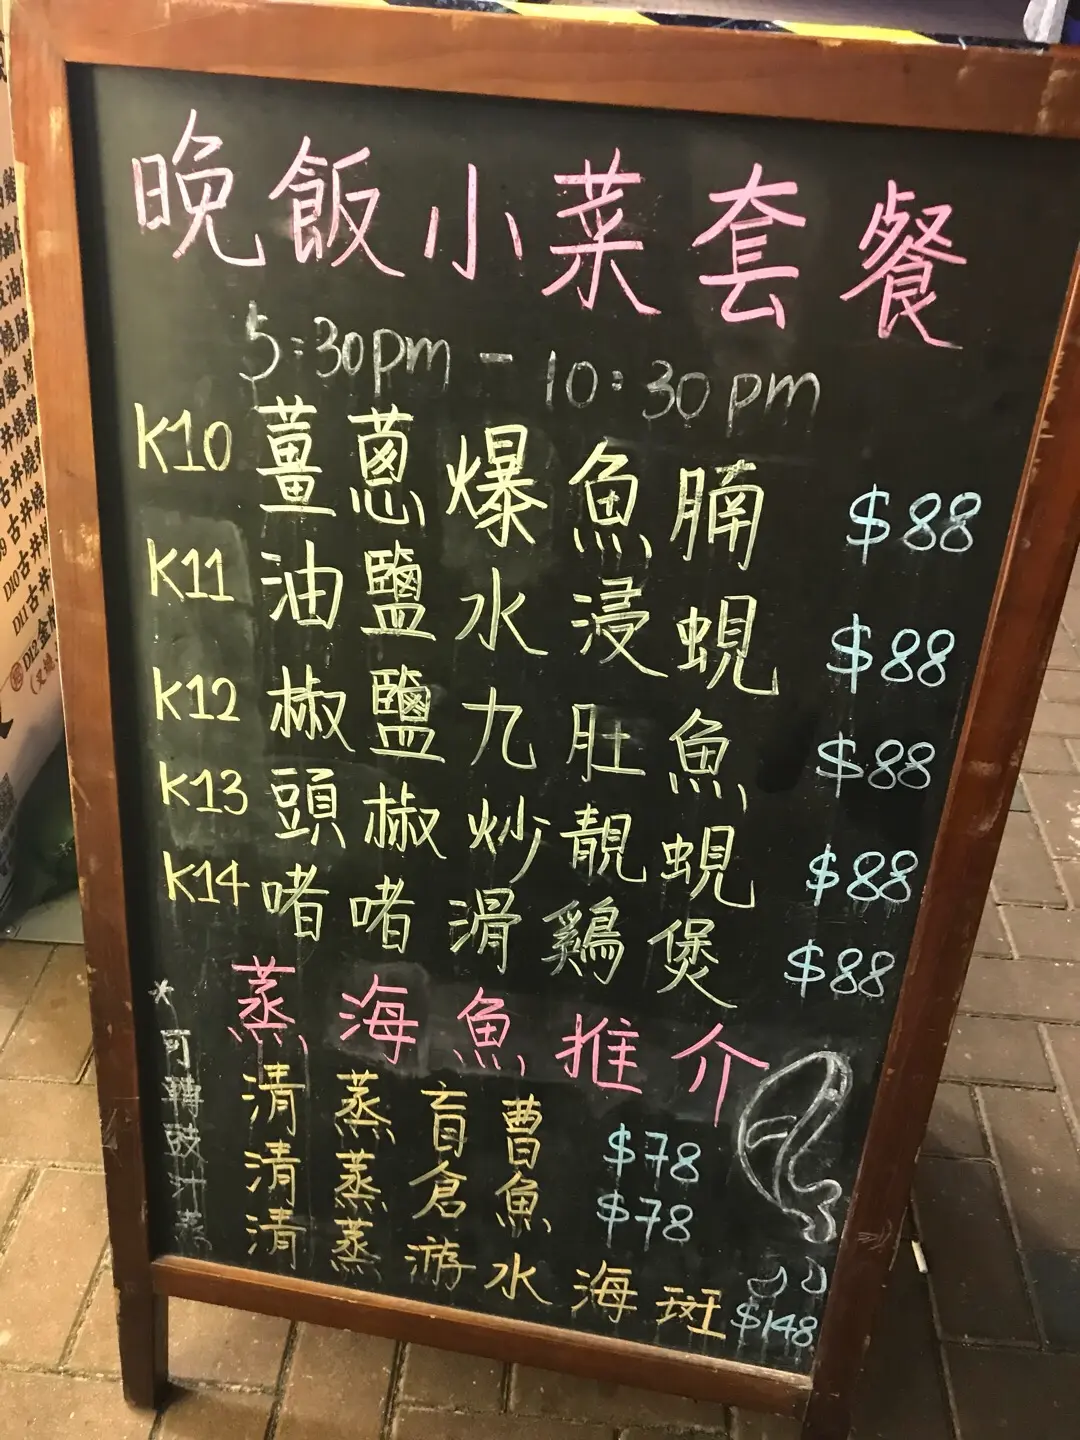 晚飯小菜套餐
5:30pm - 10:30pm
K10 薑蔥爆魚腩 $88
K11 油鹽水浸蜆 $88
K12 椒鹽九肚魚 $88
K13 頭椒炒靚蜆 $88
K14 啫啫滑鷄煲 $88
蒸海魚推介
清蒸盲曹 $78
清蒸倉魚 $78
清蒸游水海斑 $148
*可轉豉汁蒸
D10古井燒
D11古井
D12金